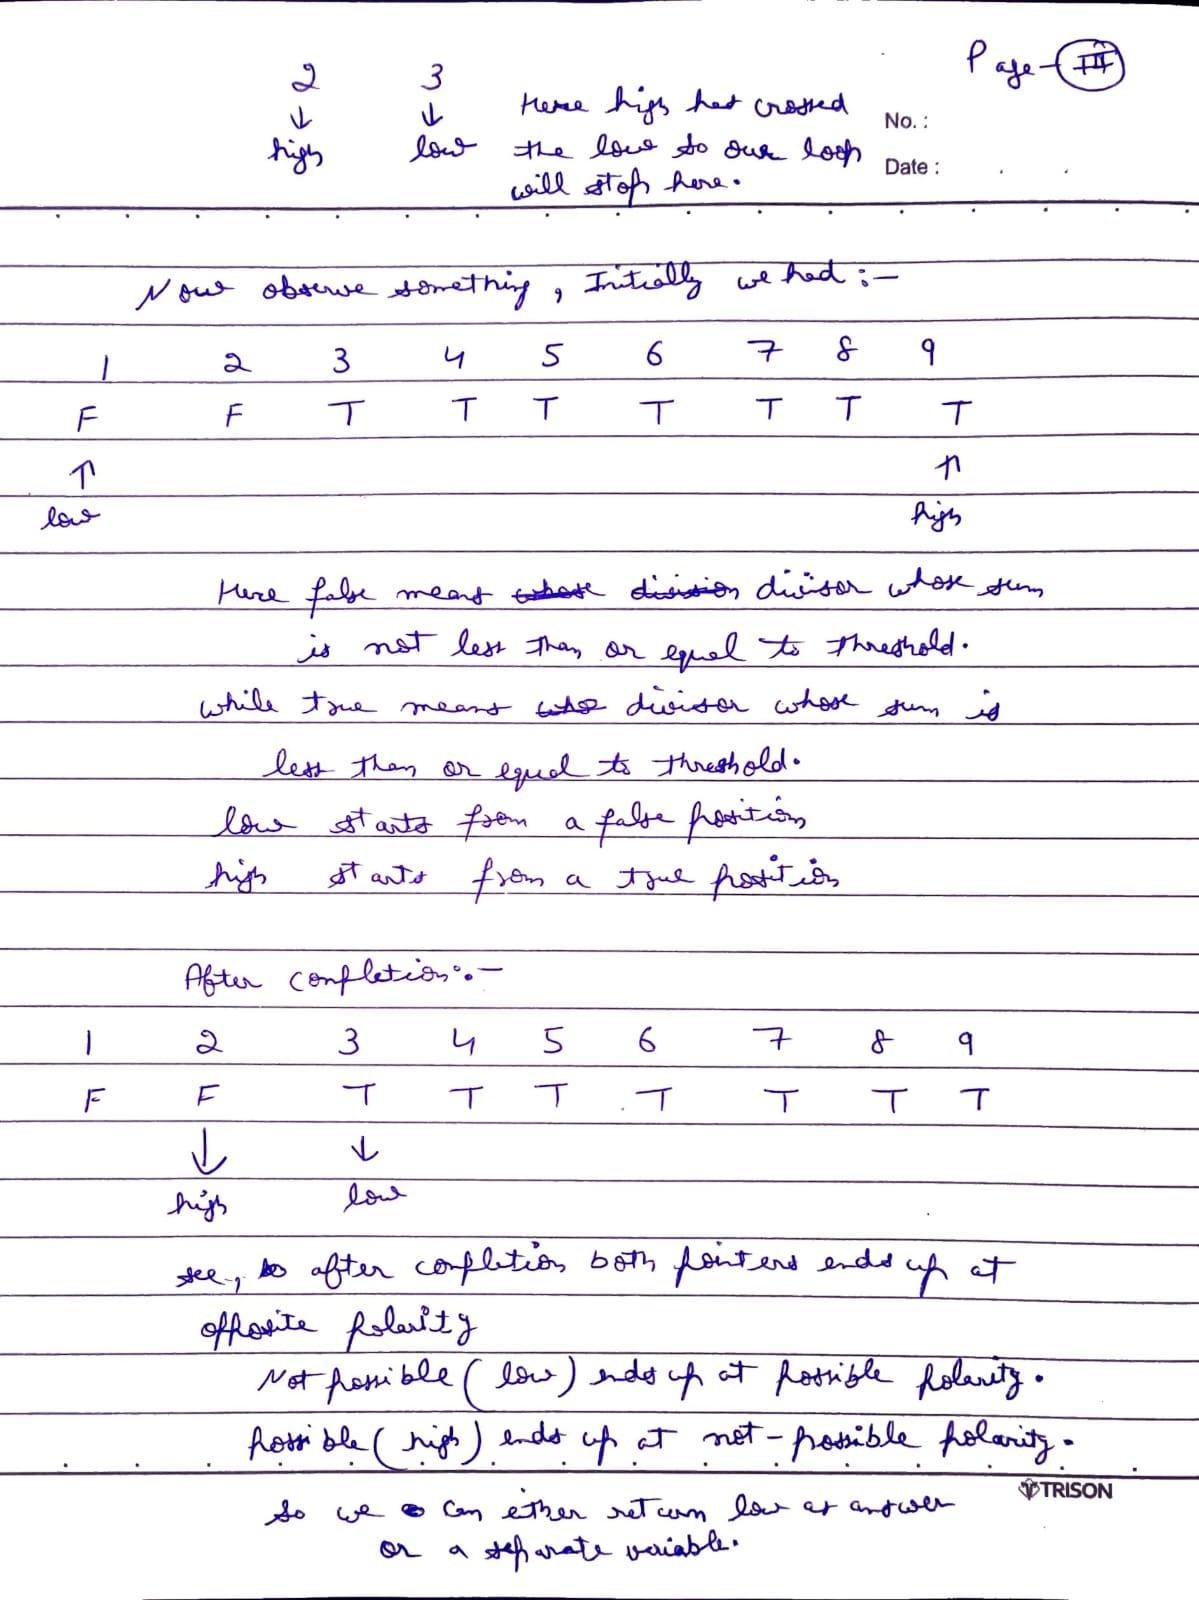 Page - III
2 3
↓ ↓
high low
Here high has crossed
the low so our loop
will stop here.
No. :
Date :
Now observe something, Initially we had :-
1 2 3 4 5 6 7 8 9
F F T T T T T T T
↑ ↑
low high
Here false means whose division divisor whose sum
is not less than or equal to threshold.
while true means who divisor whose sum is
less than or equal to threshold.
low starts from a false position
high starts from a true position
After completion :-
1 2 3 4 5 6 7 8 9
F F T T T T T T T
↓ ↓
high low
see, so after completion both pointers ends up at
opposite polarity
Not possible ( low ) ends up at possible polarity.
possible ( high ) ends up at not - possible polarity.
TRISON
so we can either return low as answer
or a separate variable.